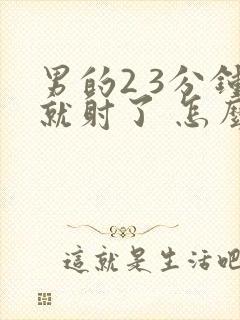 男的2 3分鐘
就射了 怎麼
這就是生活吧